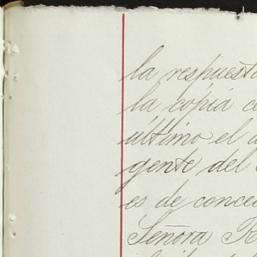 la respuesta
la copia
último el
gente del
es de
Señora